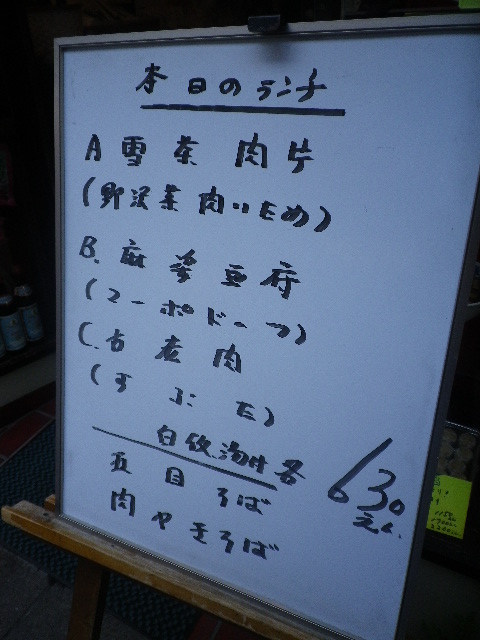 本日のランチ
A 雪菜肉片
(野沢菜肉いため)
B. 麻婆豆府
(マーボドーフ)
C. 古老肉
(すぶた)
白飯湯付各
630
えん
五目そば
肉やきそば